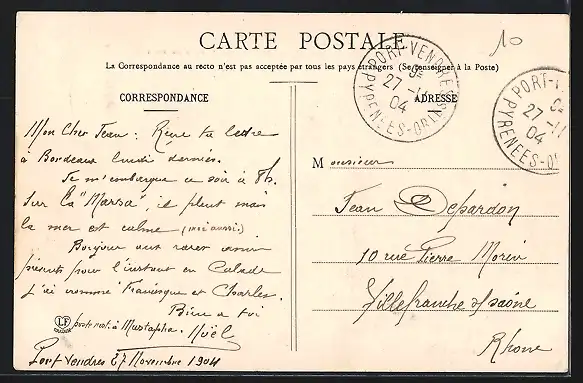 CARTE POSTALE
La Correspondance au recto n'est pas acceptée par tous les pays étrangers (Se renseigner à la Poste)
CORRESPONDANCE
ADRESSE
10
PORT-VENDRES
27 -11
04
PYRENÉES-ORIENT
PORT-V
27 -11
04
PYRENÉES-O
Mon Cher Jean : Reçu ta lettre
à Bordeaux lundi dernier.
Je m'embarque ce soir à 8h.
Sur la "Marsa", il pleut mais
la mer est calme (moi aussi).
Bonjour aux
présents pour l'instant en
j'ai nommé Francisque et Charles.
Bien à toi
poste rest. à Mustapha. Noël
Port Vendres 27 Novembre 1904
LF
Monsieur
Jean Depardon
10 rue Pierre Morin
Villefranche s/saône
Rhone